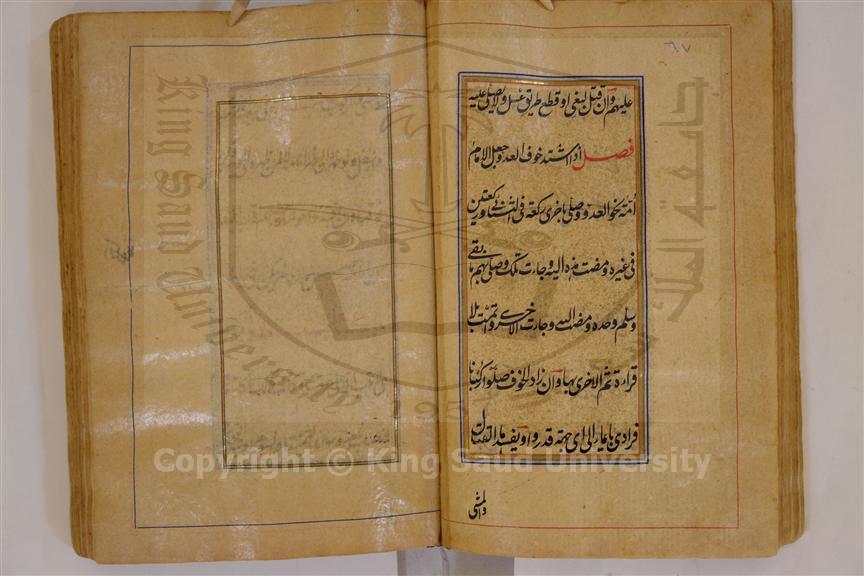 ٦٧
عليهم وان قتل لبغى او قطع طريق غسل ولا يصلى عليه
فصل اذا اشتد خوف العدو جعل الامام
امّة نحو العدو وصلى باخرى ركعة فى الثنائى وركعتين
فى غيره ومضت هذه اليه وجاءت تلك وصلى بهم ما بقى
وسلم وحده ومضت اليه وجاءت الاخرى واتمت بلا
قراءة ثم الاخرى بها وان زاد الخوف صلوا ركبانا
فرادى بايماء الى اى جهة قدروا ويفسدها القتال
والمشى
جامعة الملك
King Saud University
1957
Copyright © King Saud University